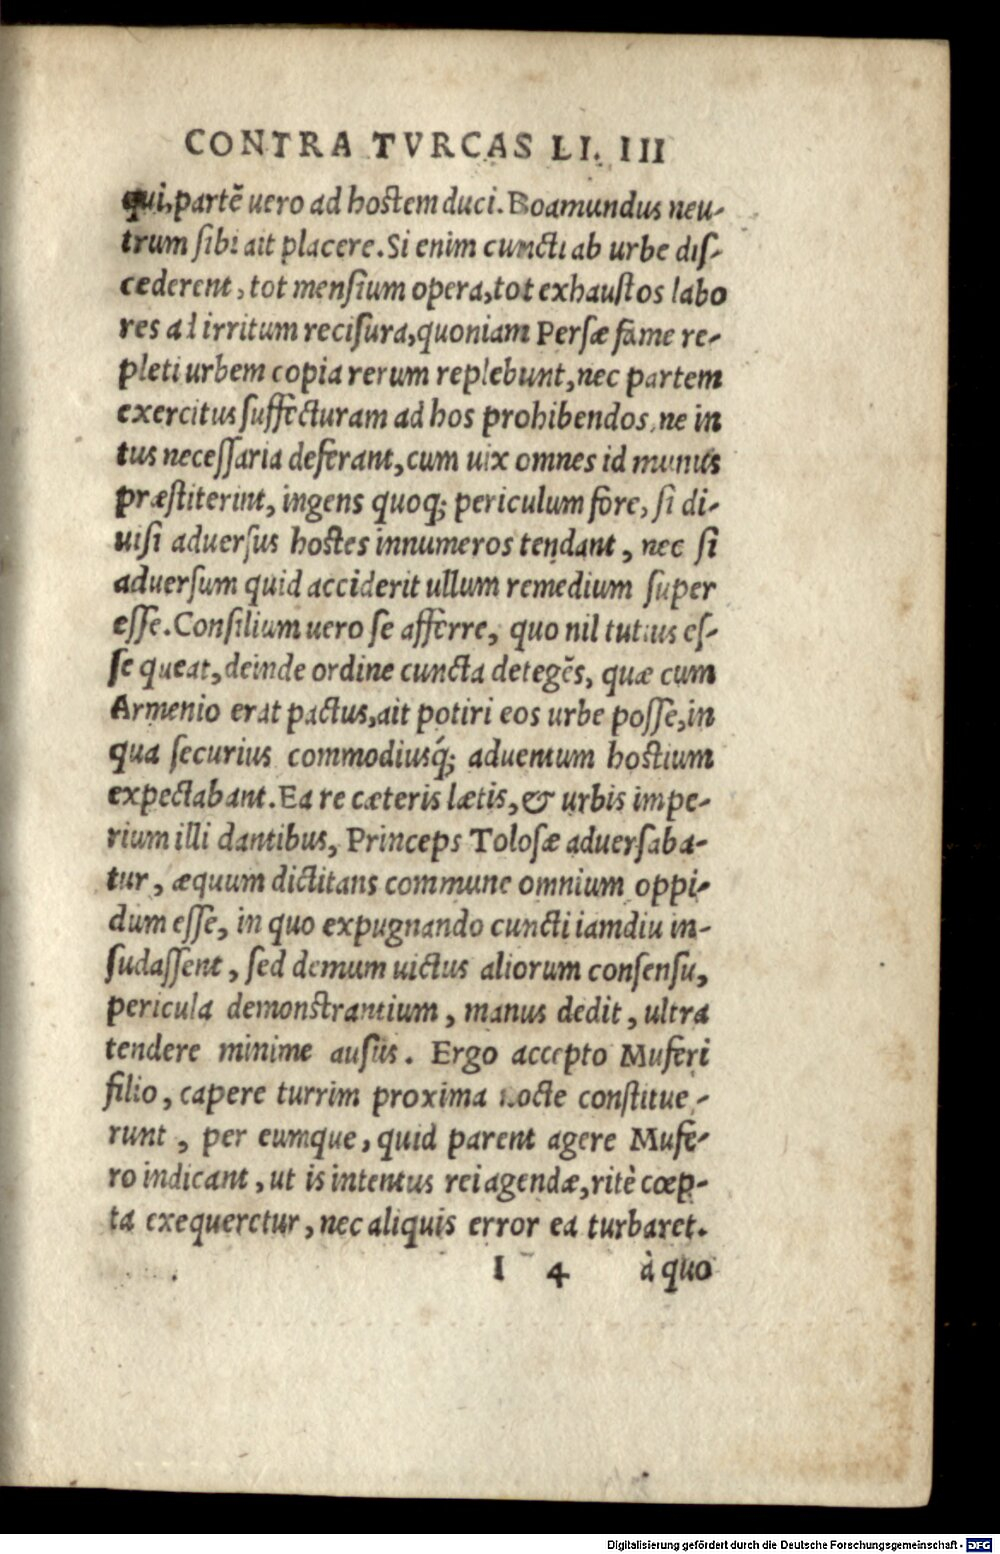 CONTRA TVRCAS LI. III
qui, partẽ uero ad hostem duci. Boamundus neu-
trum sibi ait placere. Si enim cuncti ab urbe dis-
cederent, tot mensium opera, tot exhaustos labo
res ad irritum recisura, quoniam Persæ fame re-
pleti urbem copia rerum replebunt, nec partem
exercitus suffecturam ad hos prohibendos, ne in
tus necessaria deferant, cum uix omnes id munus
præstiterint, ingens quoq; periculum fore, si di-
uisi aduersus hostes innumeros tendant, nec si
aduersum quid acciderit ullum remedium super
esse. Consilium uero se afferre, quo nil tutius es-
se queat, deinde ordine cuncta detegẽs, quæ cum
Armenio erat pactus, ait potiri eos urbe posse, in
qua securius commodiusq́; aduentum hostium
expectabant. Ea re cæteris lætis, & urbis impe-
rium illi dantibus, Princeps Tolosæ aduersaba-
tur, æquum dictitans commune omnium oppi-
dum esse, in quo expugnando cuncti iamdiu in-
sudassent, sed demum uictus aliorum consensu,
pericula demonstrantium, manus dedit, ultra
tendere minime ausus. Ergo accepto Muferi
filio, capere turrim proxima nocte constitue-
runt, per eumque, quid parent agere Mufe-
ro indicant, ut is intentus rei agendæ, ritè cœp-
ta exequeretur, nec aliquis error ea turbaret.
I 4 à quo
Digitalisierung gefördert durch die Deutsche Forschungsgemeinschaft - DFG